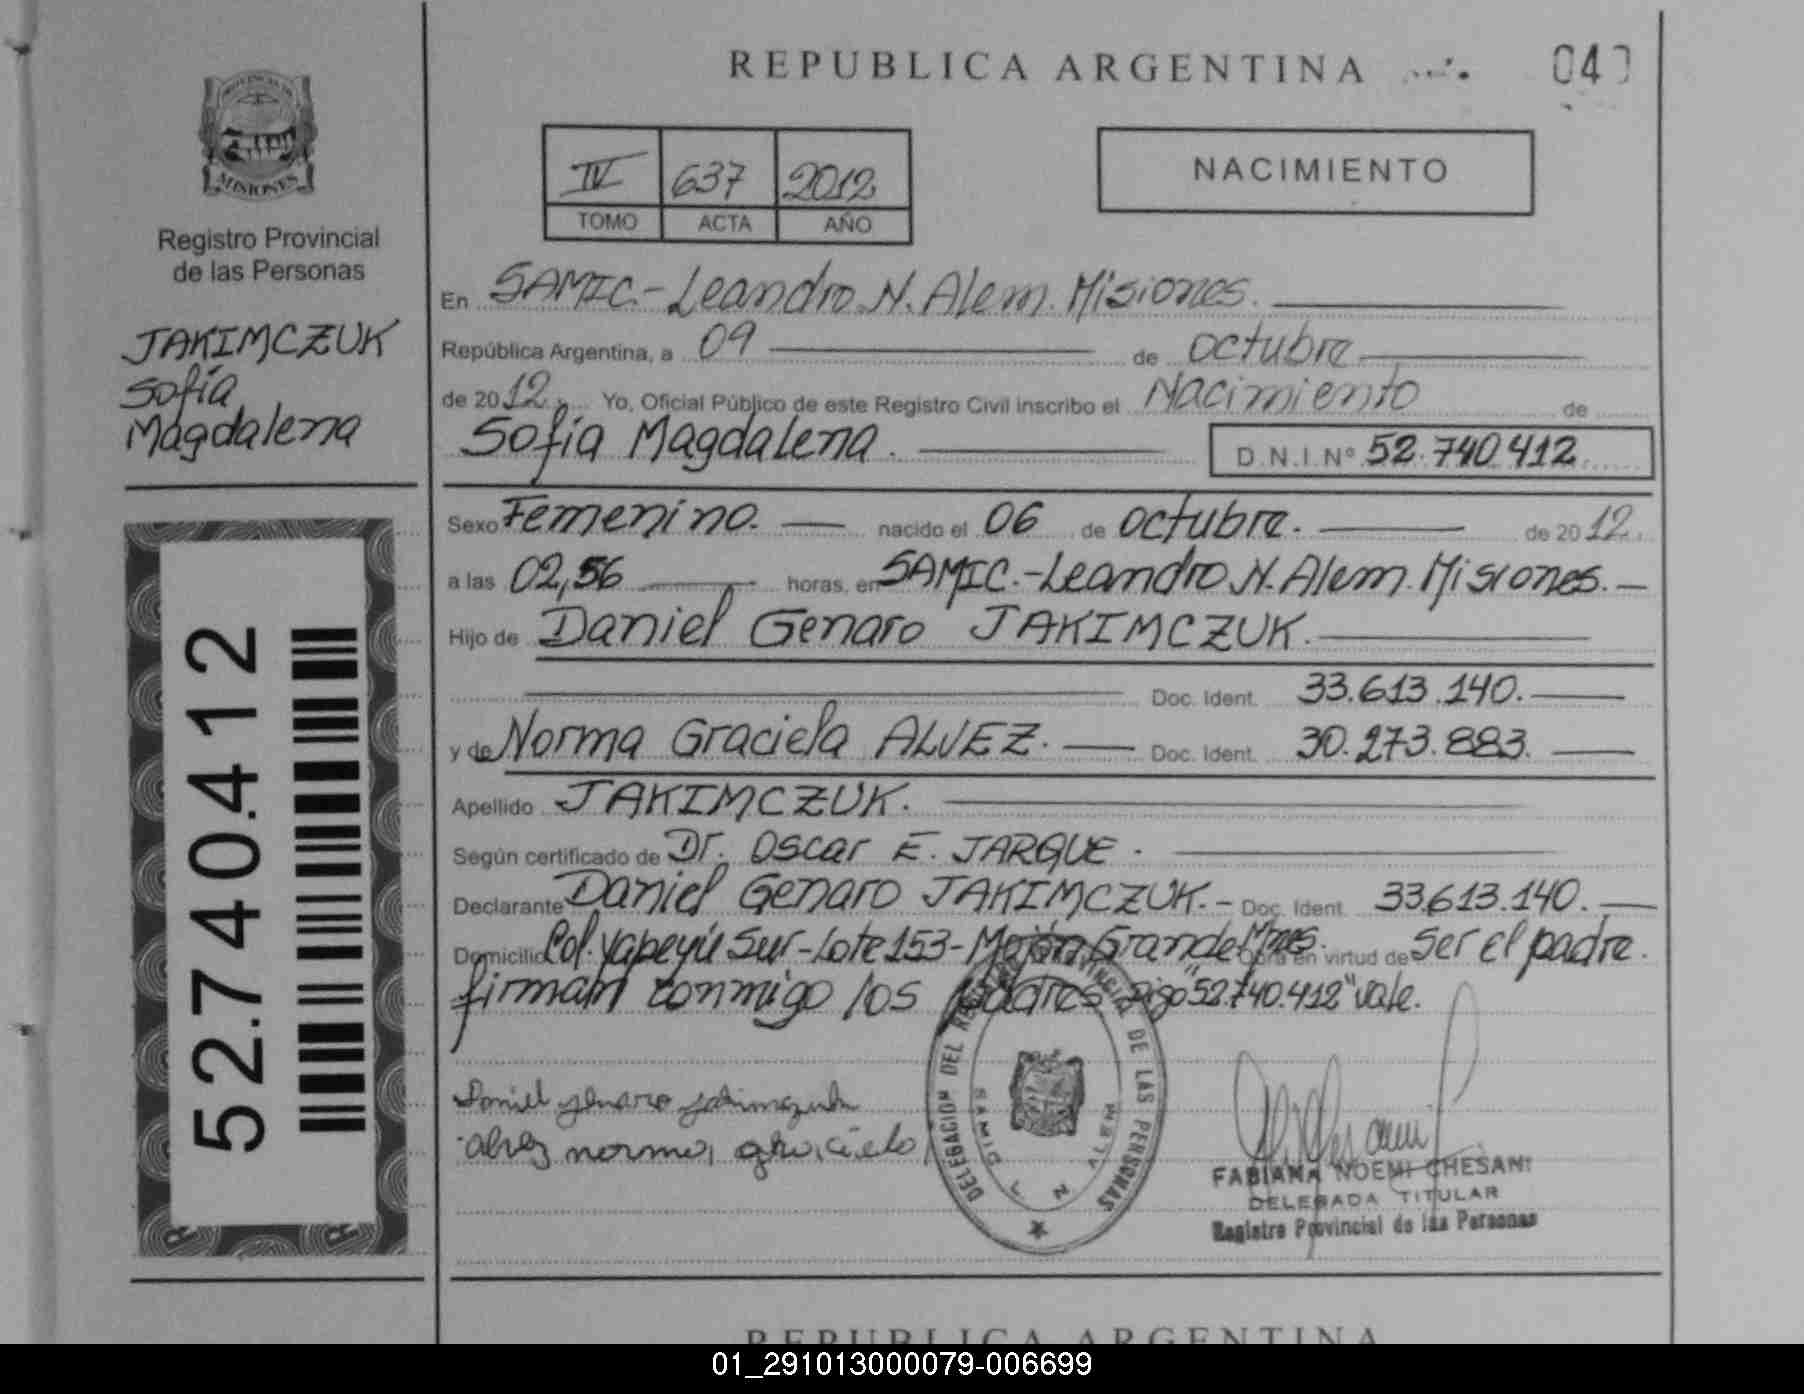 REPUBLICA ARGENTINA
04
PROVINCIA DE
MISIONES
Registro Provincial
de las Personas
JAKIMCZUK
Sofía
Magdalena
52.740.412
IV 637 2012
TOMO ACTA AÑO
NACIMIENTO
En SAMIC.-Leandro N. Alem. Misiones.
República Argentina, a 09 de octubre
de 2012. Yo, Oficial Público de este Registro Civil inscribo el Nacimiento de
Sofía Magdalena. D.N.I.Nº 52.740.412
Sexo Femenino. nacido el 06 de octubre. de 2012.
a las 02,56 horas, en SAMIC.-Leandro N. Alem. Misiones.
Hijo de Daniel Genaro JAKIMCZUK.
Doc. Ident. 33.613.140.
y de Norma Graciela ALVEZ. Doc. Ident. 30.273.883.
Apellido JAKIMCZUK.
Según certificado de Dr. Oscar E. JARQUE.
Declarante Daniel Genaro JAKIMCZUK.- Doc. Ident. 33.613.140.
Domicilio Col. Yapeyú Sur-Lote 153-Mojón Grande Mnes. Obra en virtud de ser el padre.
firman conmigo los padres Digo "52.740.412" vale.
Daniel Genaro Jakimczuk
Alvez norma graciela
DELEGACION DEL REGISTRO PROVINCIAL DE LAS PERSONAS
SAMIC L N ALEM
FABIANA NOEMI CHESANI
DELEGADA TITULAR
Registro Provincial de las Personas
REPUBLICA ARGENTINA
01_291013000079-006699